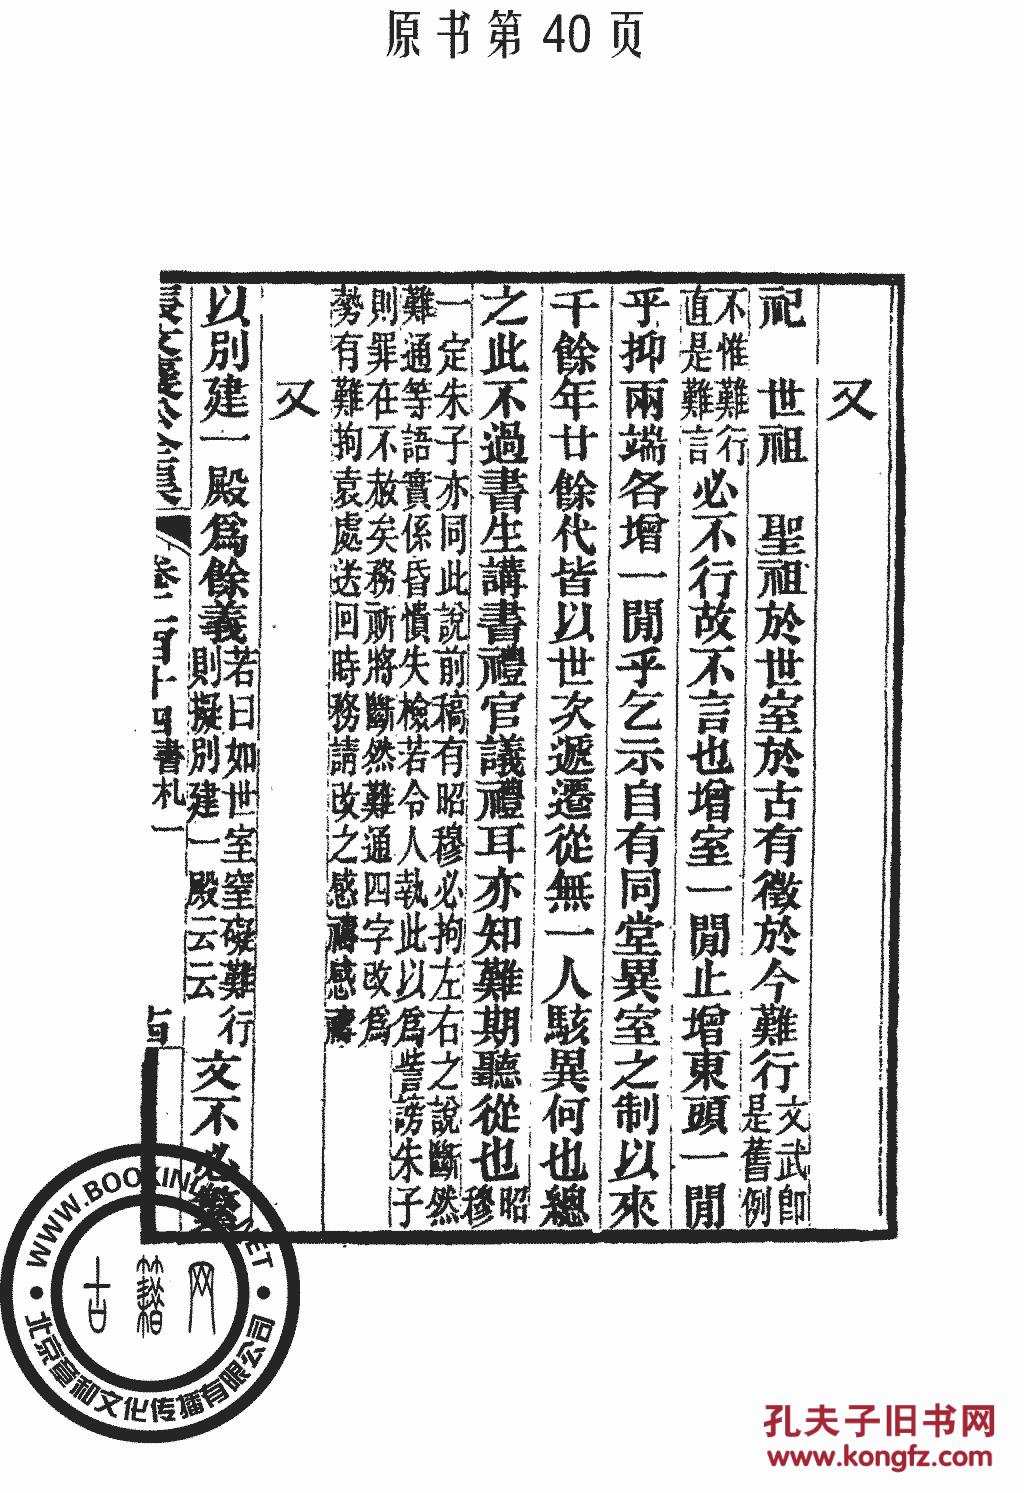 原书第 40 页
又
祀 世祖 聖祖於世室於古有徵於今難行文武卽是舊例
不惟難行直是難言必不行故不言也增室一閒止增東頭一閒
乎抑兩端各增一閒乎乞示自有同堂異室之制以來
千餘年廿餘代皆以世次遞遷從無一人駭異何也總
之此不過書生講書禮官議禮耳亦知難期聽從也昭穆
一定朱子亦同此說前稿有昭穆必拘左右之說斷然
難通等語實係昏憒失檢若令人執此以爲訾謗朱子
則罪在不赦矣務斷將斷然難通四字改爲
勢有難拘袁處送回時務請改之感禱感禱
又
以別建一殿爲餘義若曰如世室窒礙難行則擬別建一殿云云文不必繁
卷二百十四書札一
WWW.BOOKINLIFE.NET
古籍网
北京章和文化传播有限公司
孔夫子旧书网
www.kongfz.com